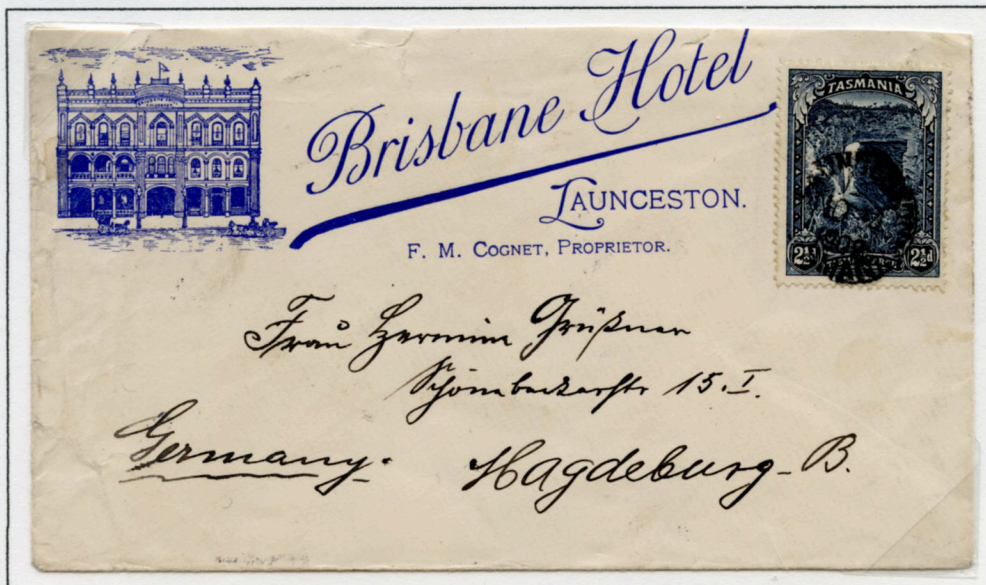 Brisbane Hotel
LAUNCESTON.
F. M. COGNET, PROPRIETOR.
TASMANIA
2½d 2½d
Frau Hermine Grüßner
Schönebeckerstr 15. I.
Germany. Magdeburg-B.